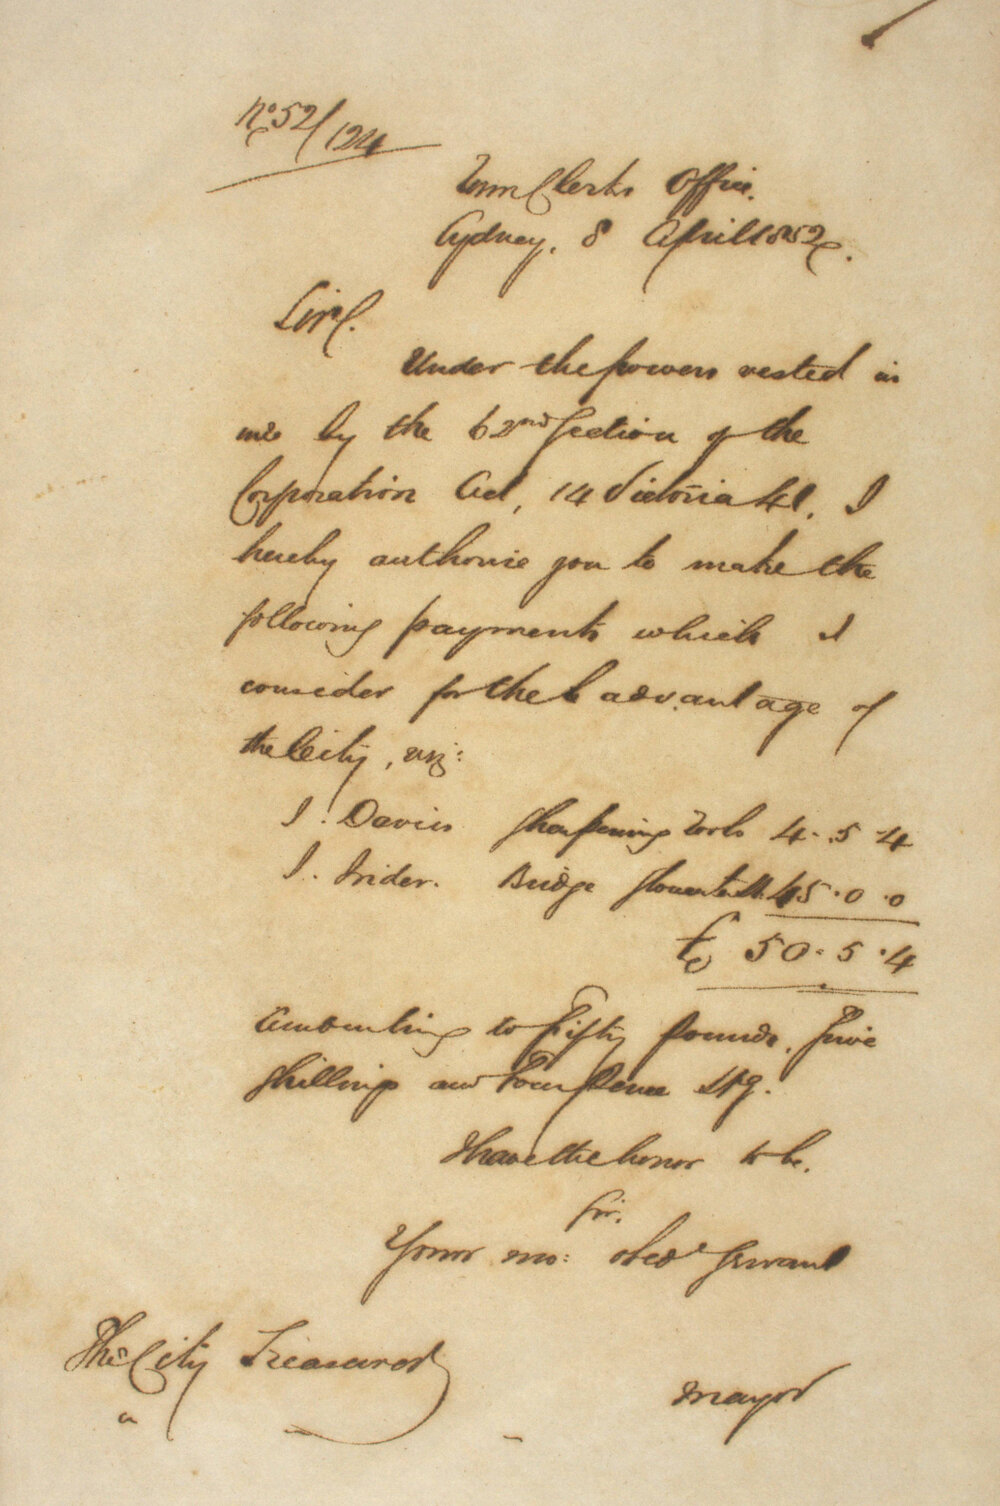 No 52/124
Town Clerks Office.
Sydney. 8 April 1852.
Sir.
Under the powers vested in
me by the 62nd Section of the
Corporation Act, 14 Victoria 41. I
hereby authorise you to make the
following payments which I
consider for the advantage of
the City, viz:
J. Davies sharpening tools 4..5.4
J. Bridge 45.0.0
£ 50.5.4
Amounting to Fifty pounds. five
shillings and Four pence Stg.
I have the honor to be.
Sir.
Your mo: obedt Servant
The City Treasurer
Mayor